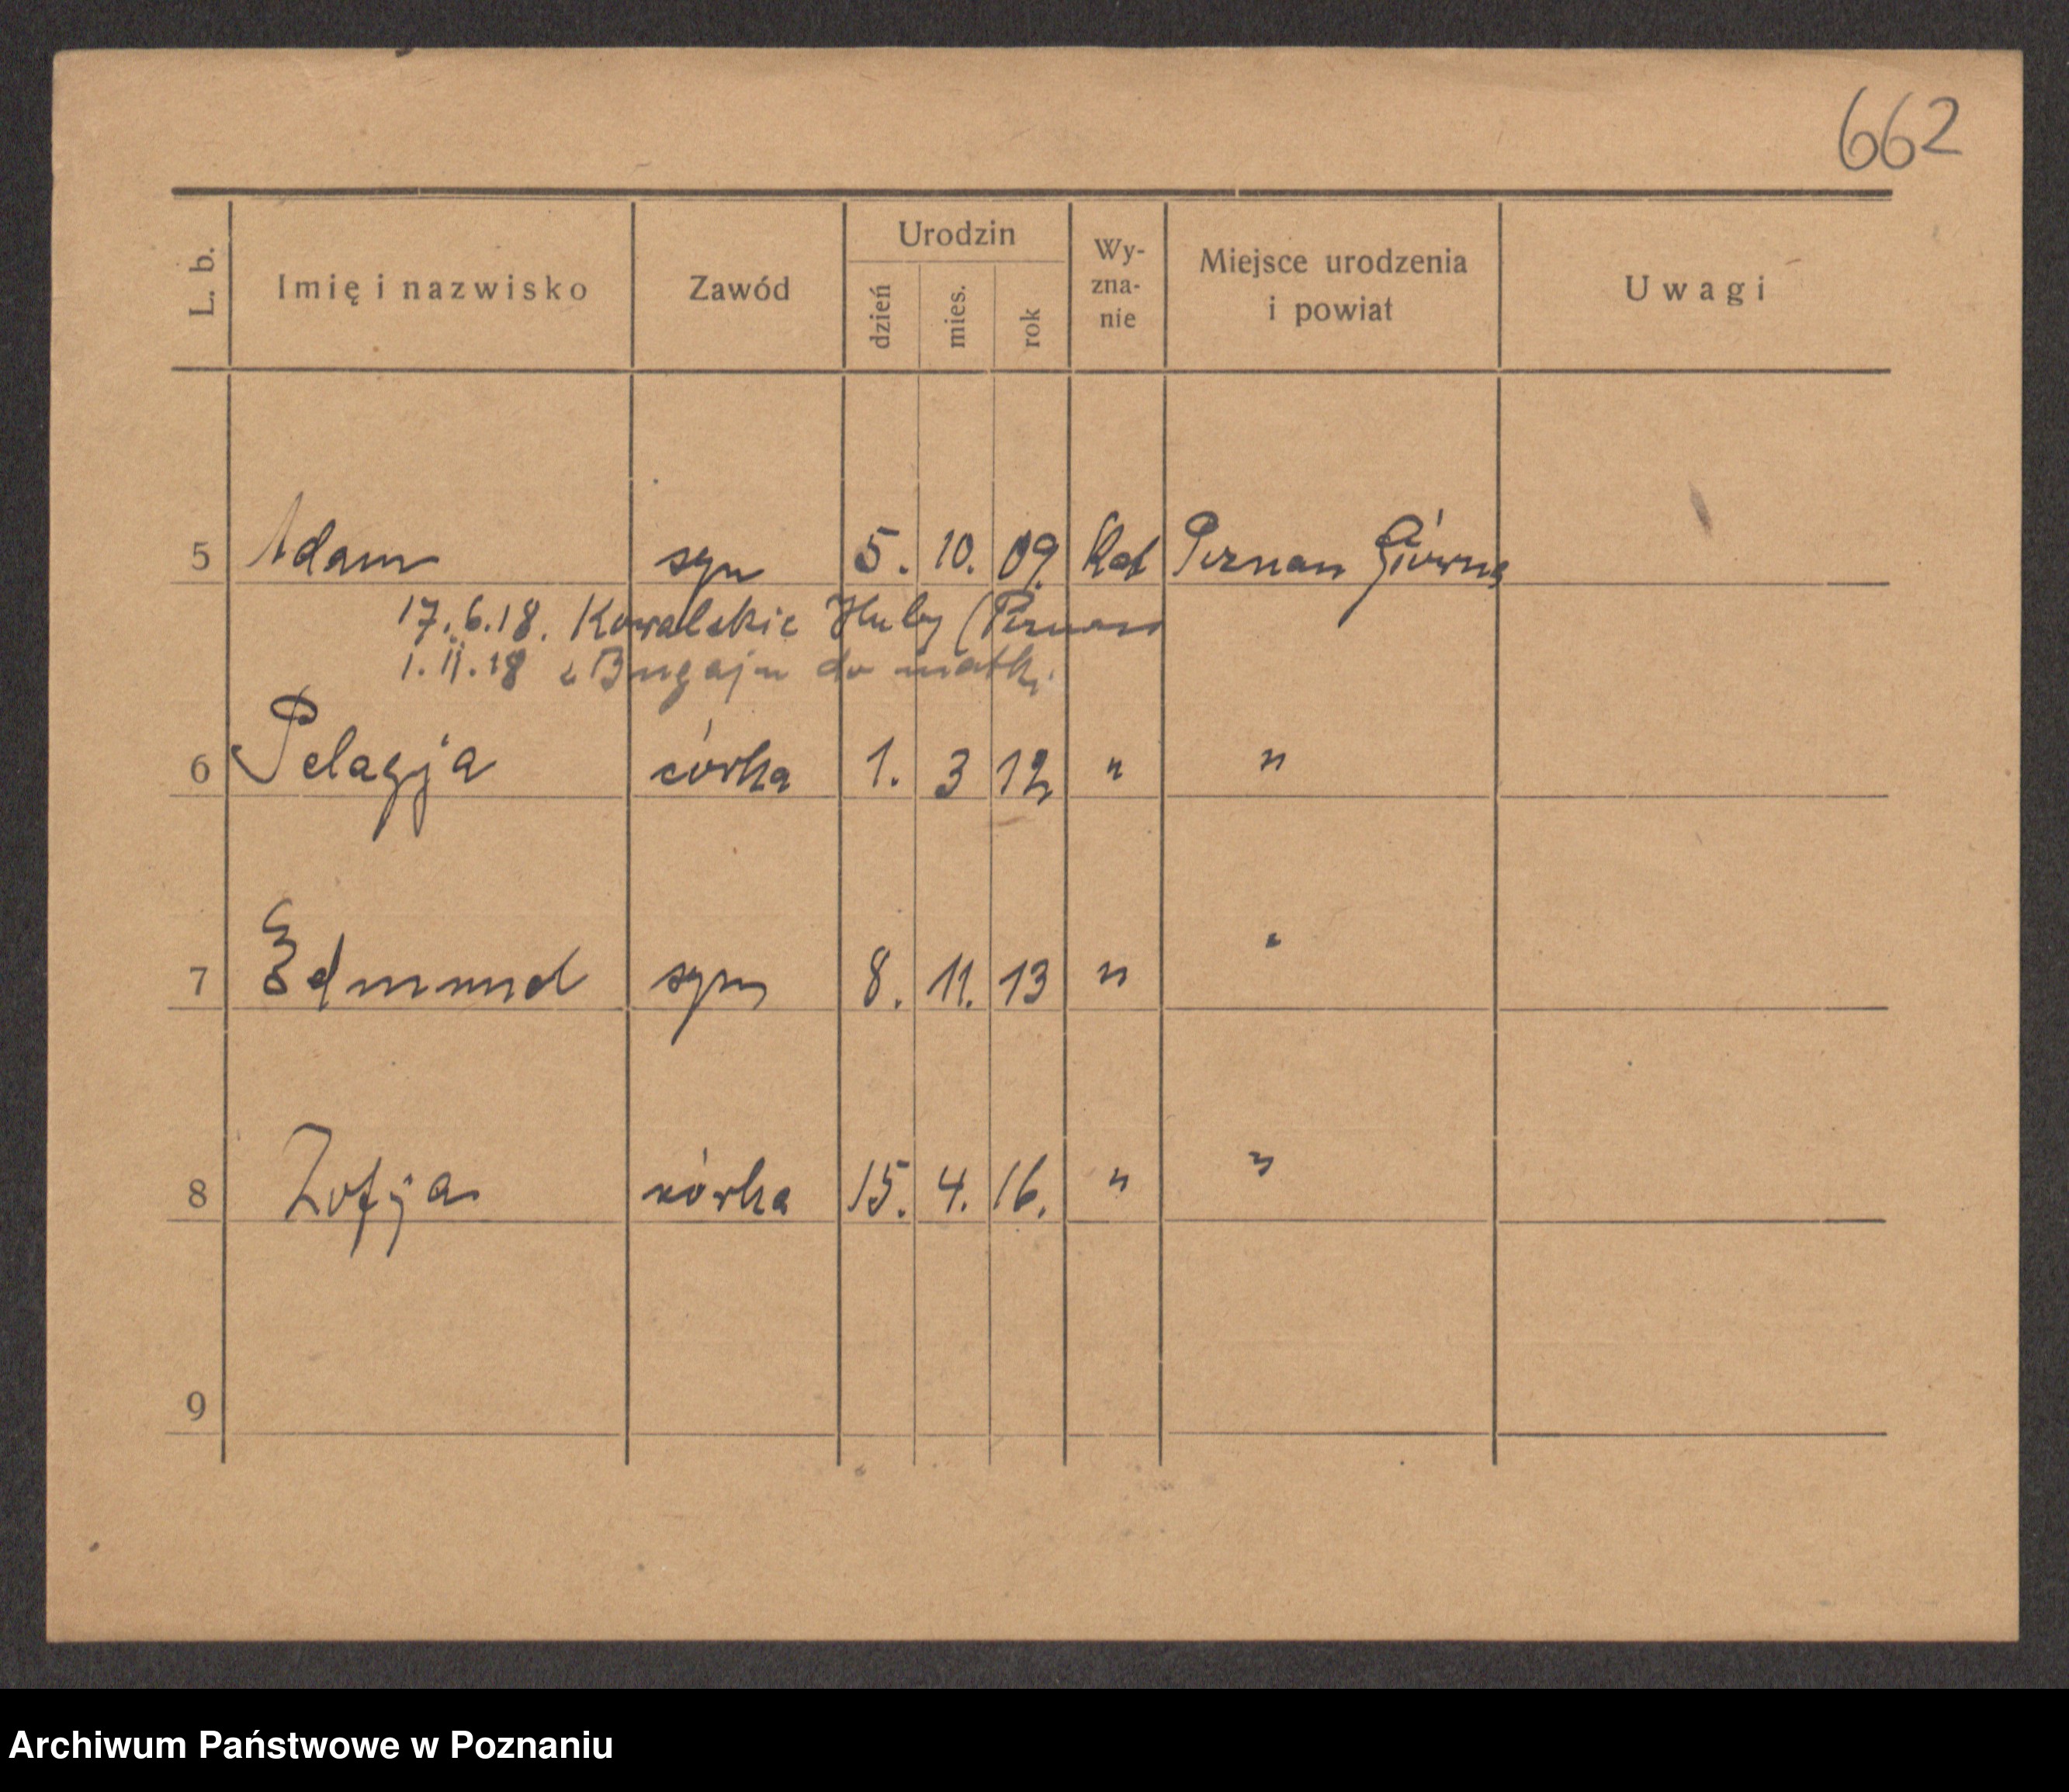 662
L. b. Imię i nazwisko Zawód Urodzin dzień mies. rok Wy-zna-nie Miejsce urodzenia i powiat Uwagi
5 Adam syn 5. 10. 09. Kat Poznan Główna
17.6.18. Kowalskie Huby (Poznan
1.11.18 z Bugaju do matki
6 Pelagja córka 1. 3 12 " "
7 Edmund syn 8. 11. 13 " "
8 Zofja córka 15. 4. 16. " "
9
Archiwum Państwowe w Poznaniu